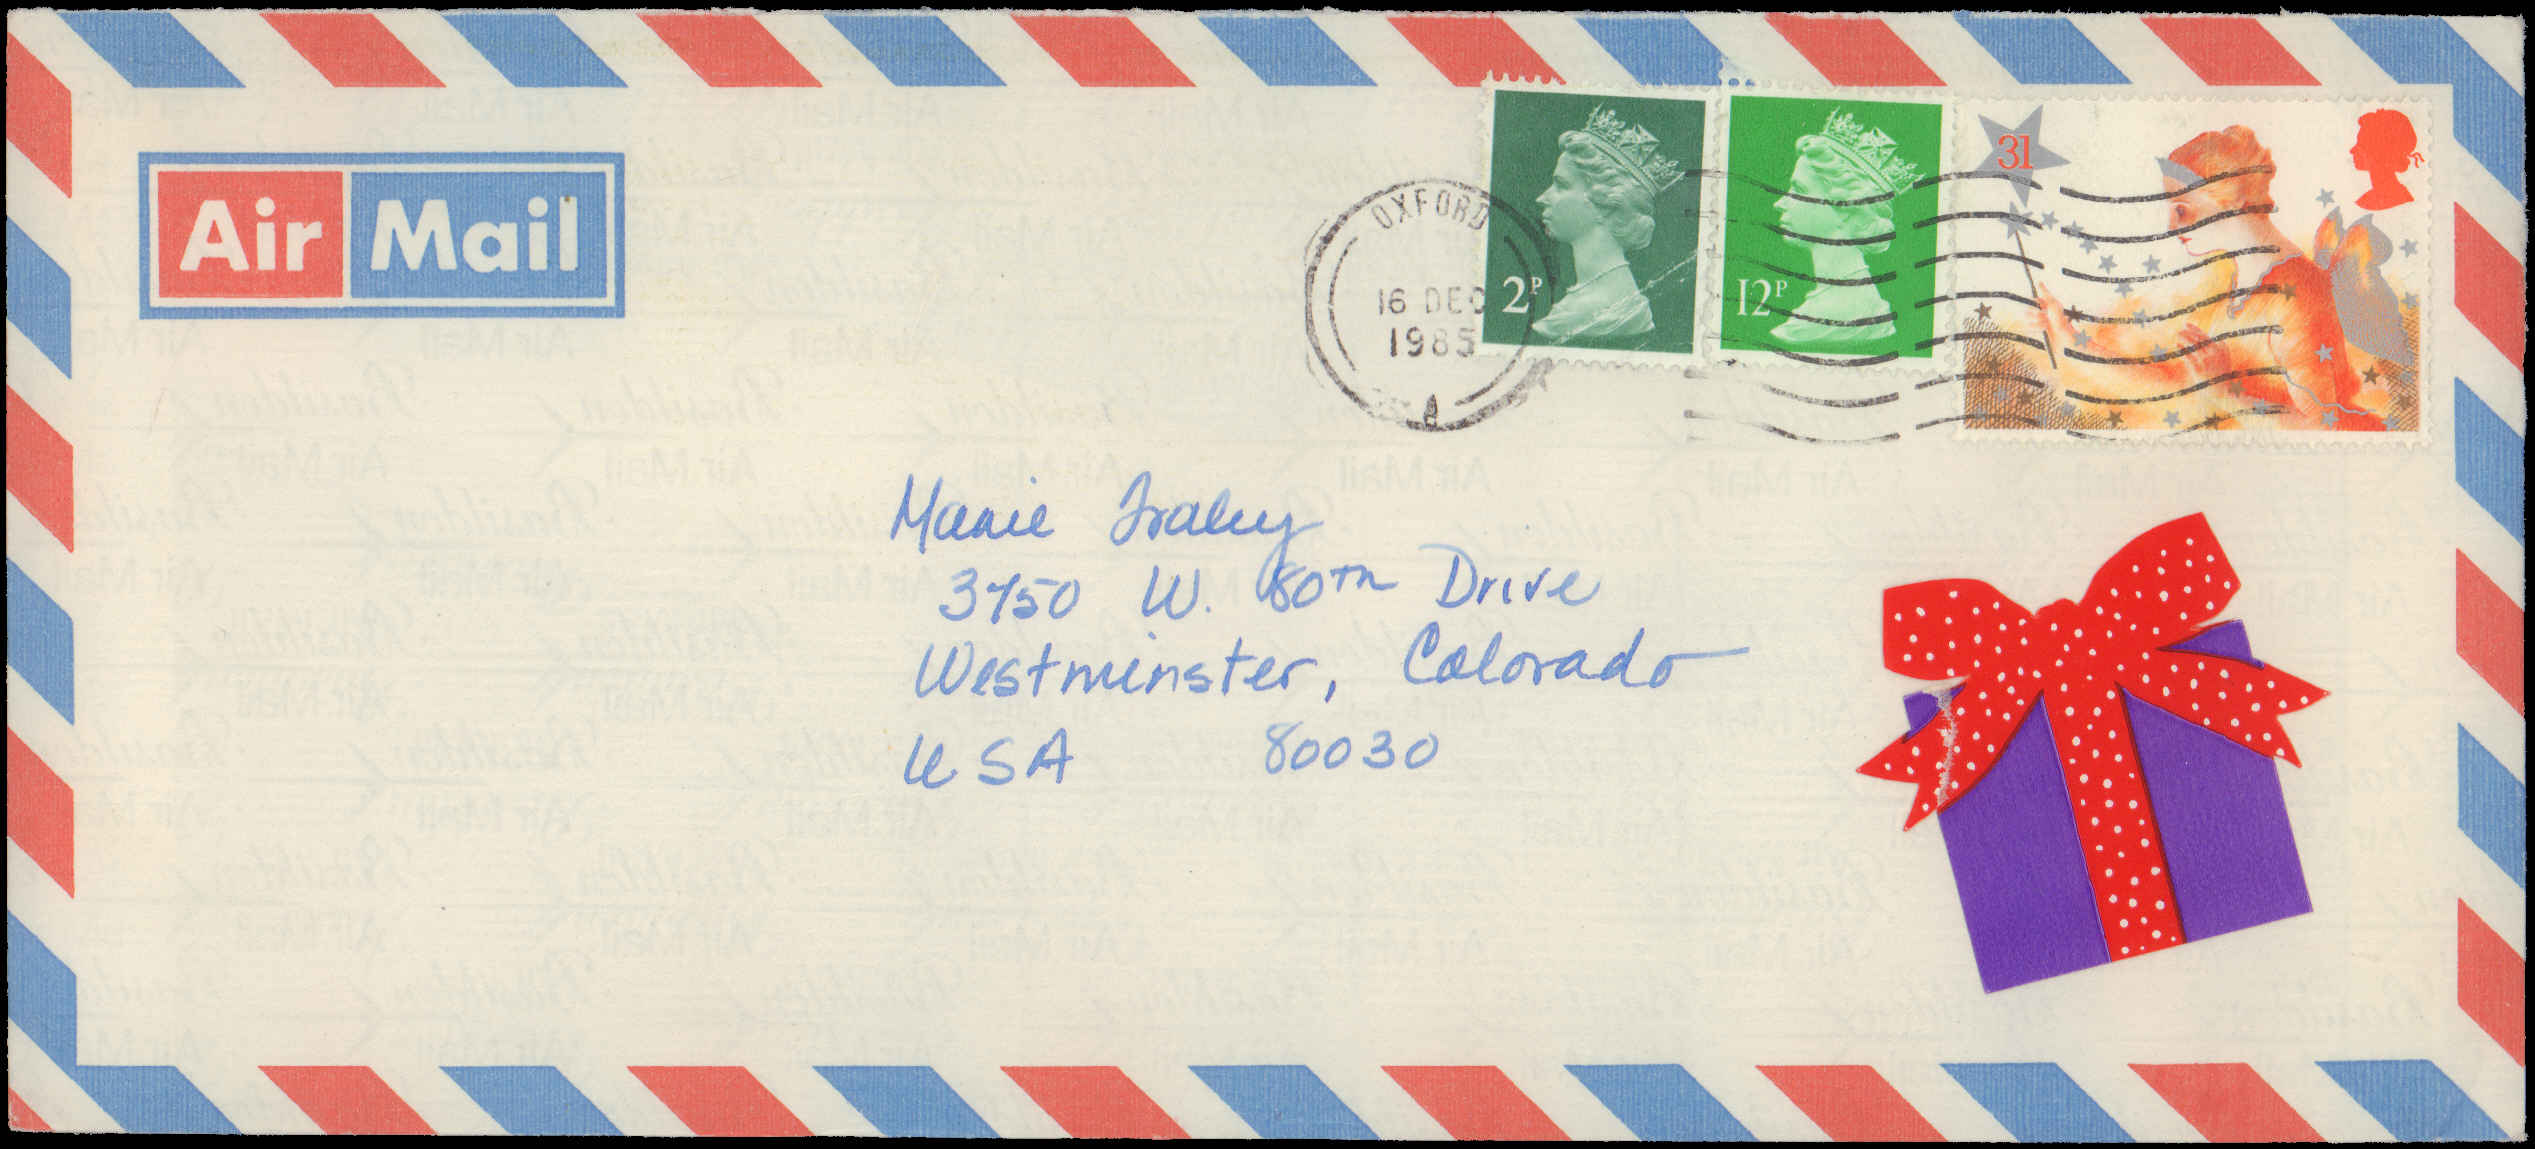 Air Mail
OXFORD
16 DEC
1985
A
2P
12P
31
Marie Fraley
3750 W. 80TH Drive
Westminster, Colorado
USA 80030